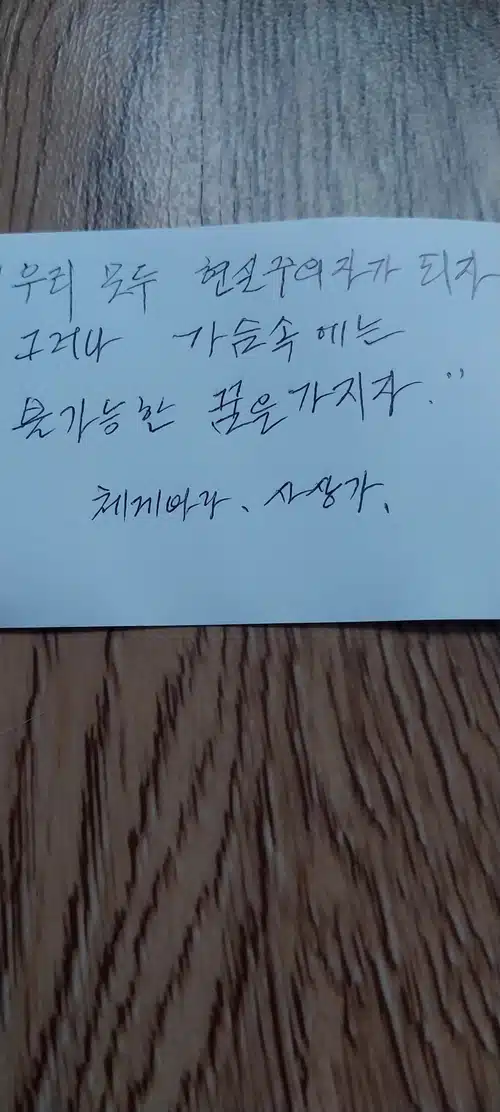 "우리 모두 현실주의자가 되자
그러나 가슴속에는
불가능한 꿈을 가지자."
체게바라、사상가、